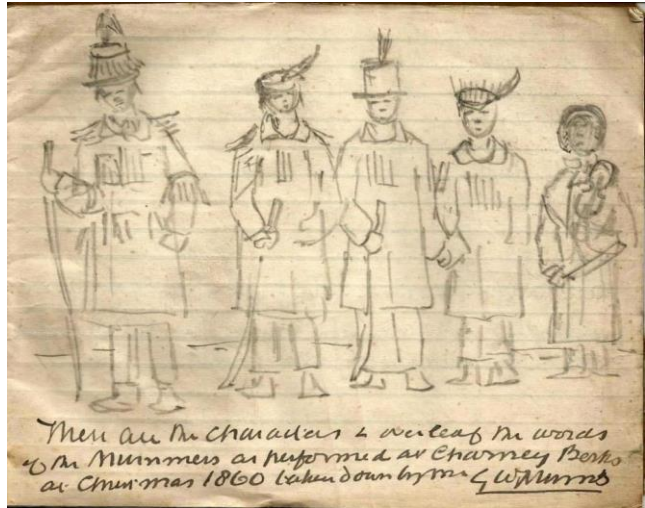 These are the characters & overleaf the words
of the Mummers as performed at Charney Berks
at Christmas 1860 taken down by me